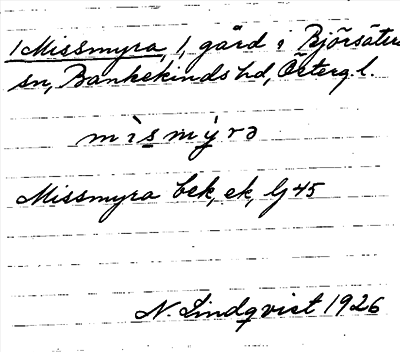 1 Missmyra, 1, gård i Björsäters
sn, Bankekinds hd, Österg.l.
mìsmýrə
Missmyra bek, ek, Gj 45
N. Lindqvist 1926